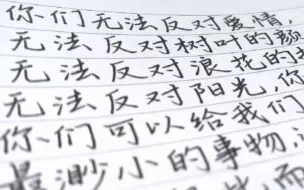 你们无法反对爱情，
无法反对树叶的颜
无法反对浪花的
无法反对阳光，你
你们可以给我们
最渺小的事物，
而